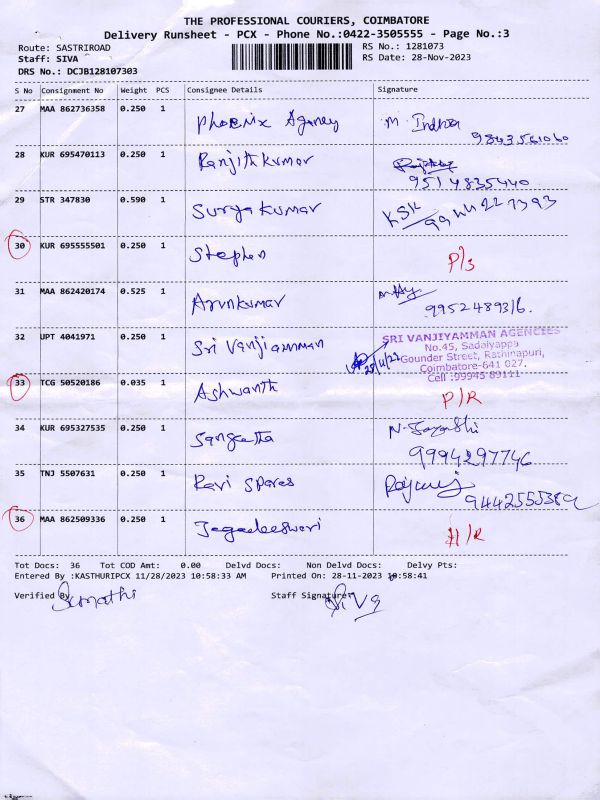 THE PROFESSIONAL COURIERS, COIMBATORE
Delivery Runsheet - PCX - Phone No.:0422-3505555 - Page No.:3
Route: SASTRIROAD RS No.: 1281073
Staff: SIVA RS Date: 28-Nov-2023
DRS No.: DCJB128107303
S No Consignment No Weight PCS Consignee Details Signature
27 MAA 862736358 0.250 1 Phoenix Agancy M. Indhra 9843561060
28 KUR 695470113 0.250 1 Ranjithkumar 9514835440
29 STR 347830 0.590 1 Suryakumar KSK
30 KUR 695555501 0.250 1 Stephen P/s
31 MAA 862420174 0.525 1 Arunkumar 9952489316.
32 UPT 4041971 0.250 1 Sri Vanjiamman
SRI VANJIYAMMAN AGENCIES
No.45, Sadaiyappa
Gounder Street, Rathinapuri,
Coimbatore-641 027.
Cell :99945 89111
33 TCG 50520186 0.035 1 Ashwanth P/R
34 KUR 695327535 0.250 1 Sangeetha 9994297746
35 TNJ 5507631 0.250 1 Ravi Spares
36 MAA 862509336 0.250 1 Jagadeeswari H/R
Tot Docs: 36 Tot COD Amt: 0.00 Delvd Docs: Non Delvd Docs: Delvy Pts:
Entered By :KASTHURIPCX 11/28/2023 10:58:33 AM Printed On: 28-11-2023 10:58:41
Verified By Sumathi Staff Signature: SIVA